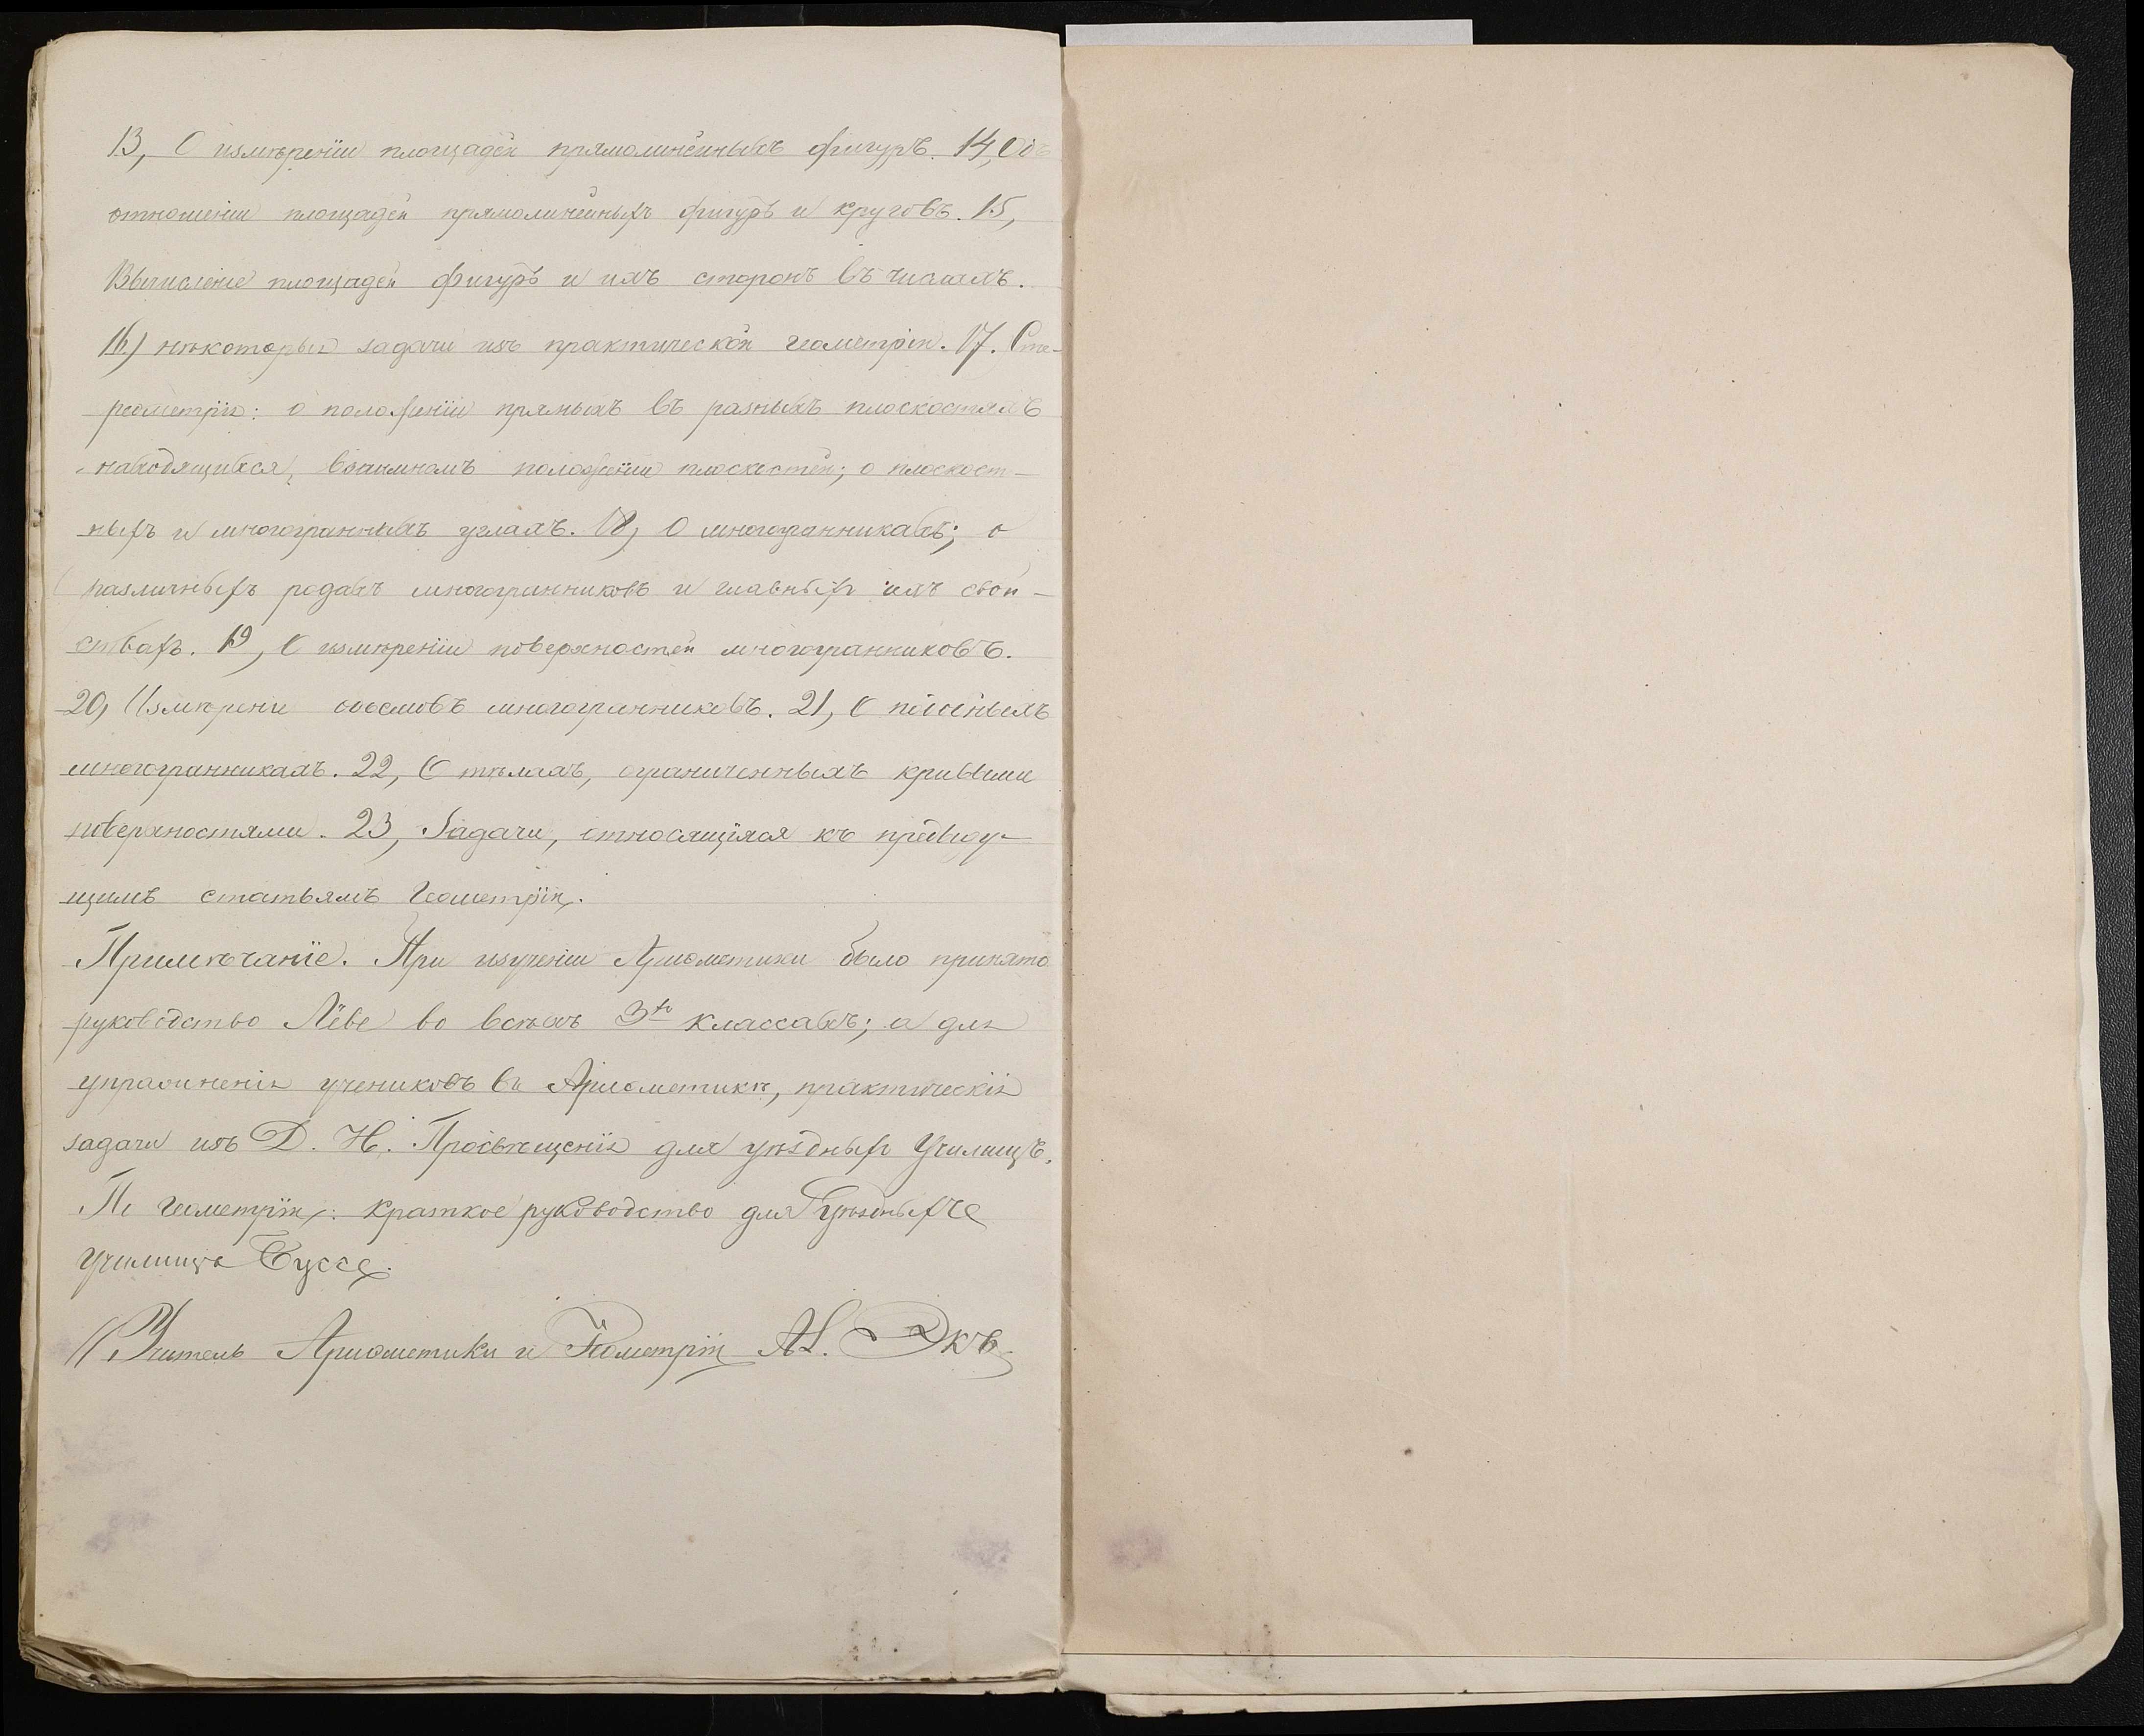 13, О измѣреніи площадей прямолинейныхъ фигуръ. 14, Объ
отношеніи площадей прямолинейныхъ фигуръ и круговъ. 15,
Вычисленіе площадей фигуръ и ихъ сторонъ въ числахъ.
16) нѣкоторыя задачи изъ практической геометріи. 17. Сте-
реометрія: о положеніи прямыхъ въ разныхъ плоскостяхъ
находящихся, взаимномъ положеніи плоскостей; о плоскост-
ныхъ и многогранныхъ углахъ. 18, О многогранникахъ; о
различныхъ родахъ многогранниковъ и главныхъ ихъ свой-
ствахъ. 19, О измѣреніи поверхностей многогранниковъ.
20, Измѣреніе объемовъ многогранниковъ. 21, О подобныхъ
многогранникахъ. 22, О тѣлахъ, ограниченныхъ кривыми
поверхностями. 23, Задачи, относящіяся къ предыду-
щимъ статьямъ Геометріи.
Примѣчаніе. При изученіи Ариѳметики было принято
руководство Лёве во всѣхъ 3хъ классахъ; а для
упражненія учениковъ въ Ариѳметикѣ, практическія
задачи изъ Д. Н. Просвѣщенія для уѣздныхъ Училищъ.
По геометріи: краткое руководство для Уѣздныхъ
Училищъ Буссе.
Учитель Ариѳметики и Геометріи А. Экъ.